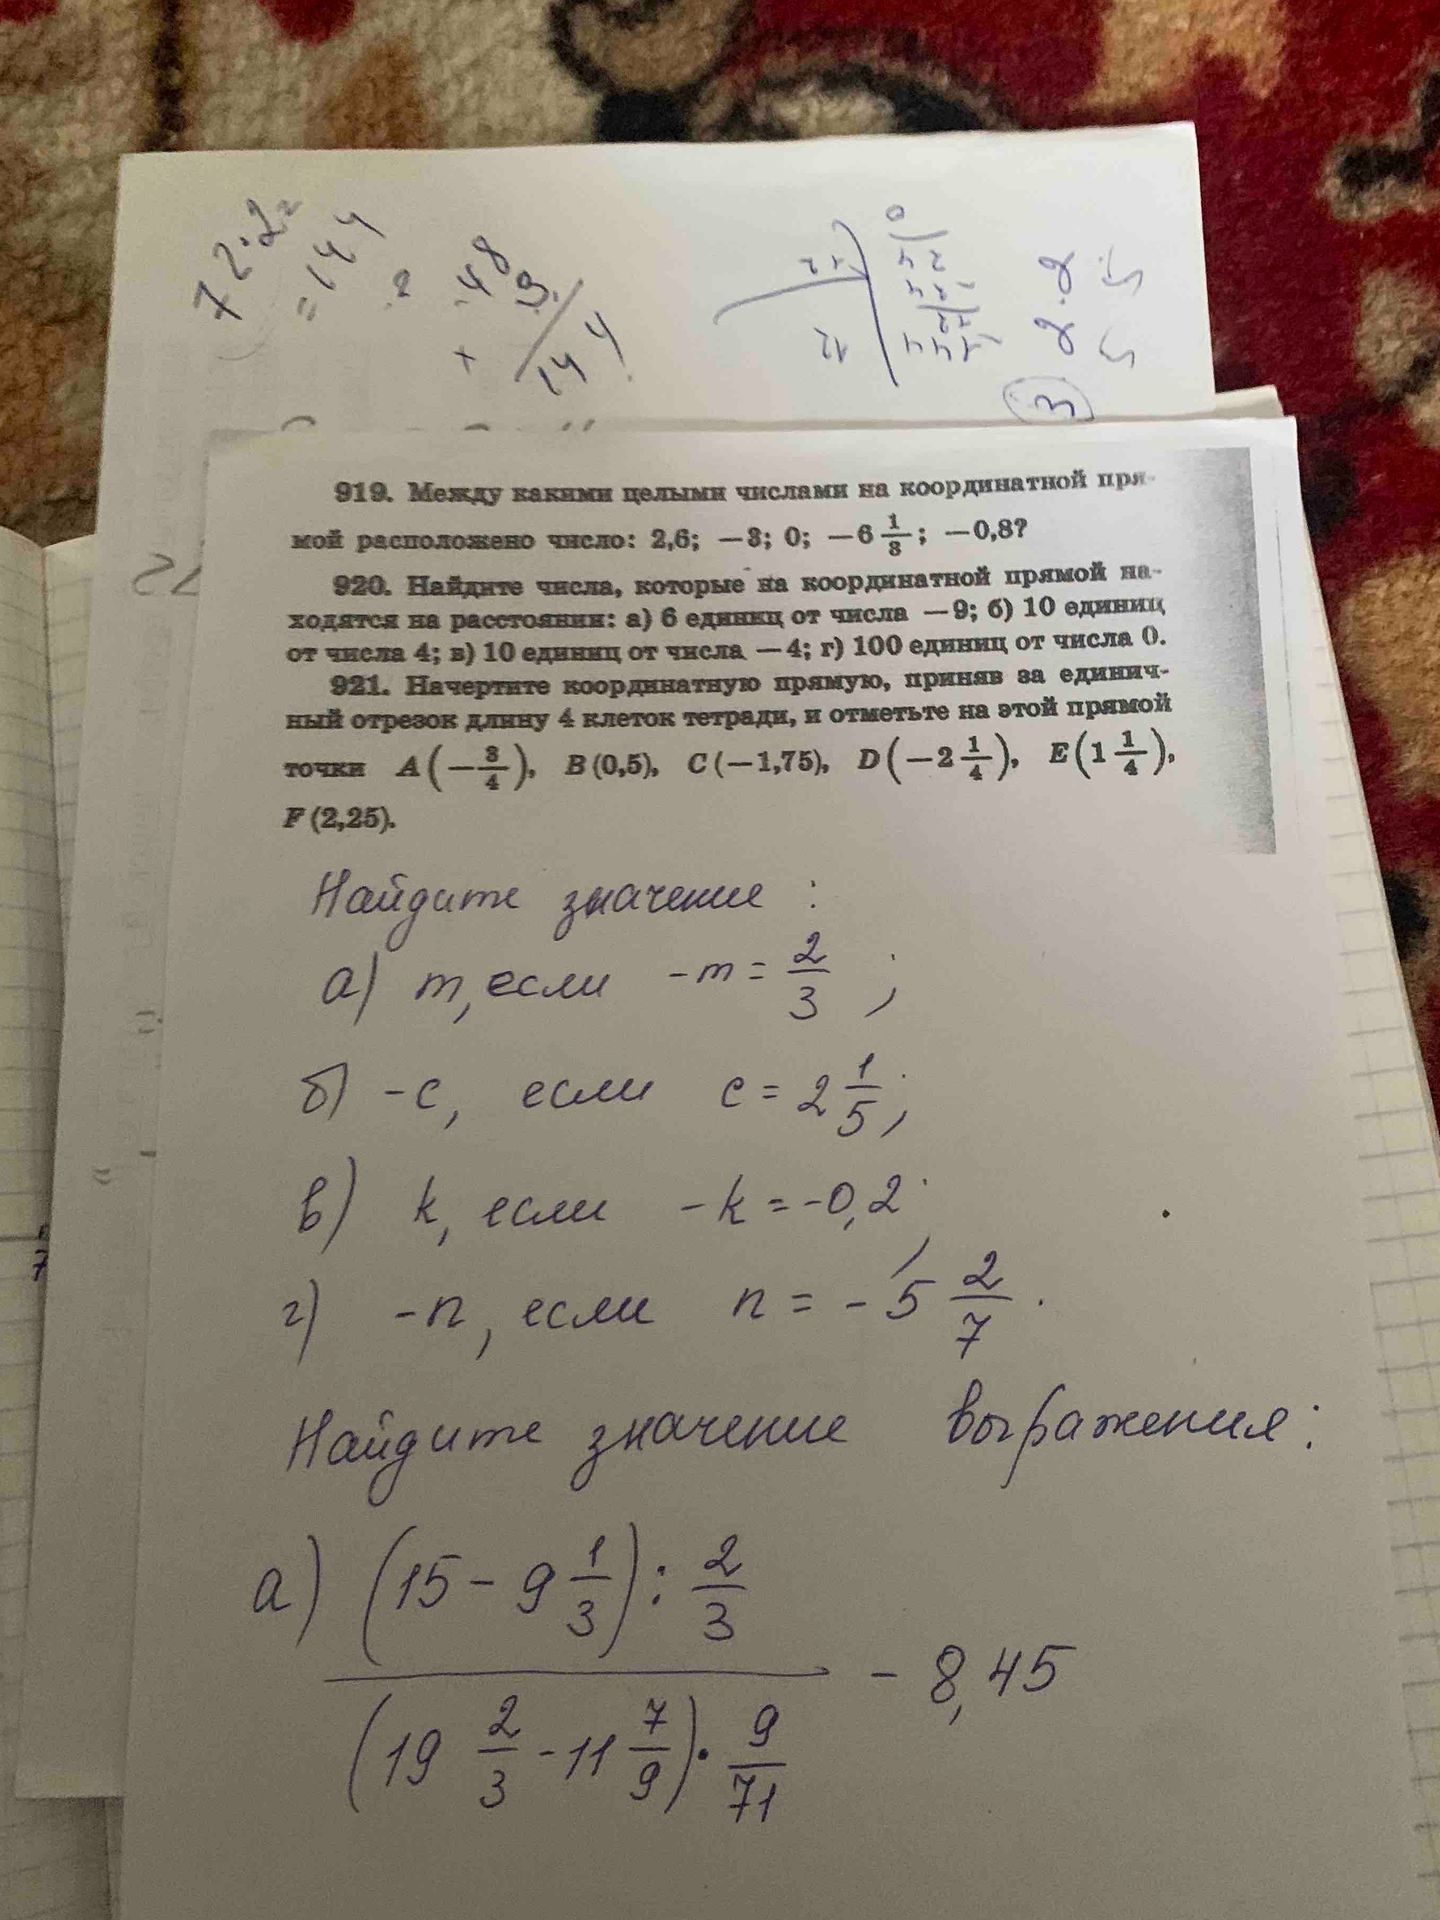 72·2=
=144
2
48
+
9
144
919. Между какими целыми числами на координатной пря-
мой расположено число: 2,6; —3; 0; —6 1/3; —0,8?
920. Найдите числа, которые на координатной прямой на-
ходятся на расстоянии: а) 6 единиц от числа —9; б) 10 единиц
от числа 4; в) 10 единиц от числа —4; г) 100 единиц от числа 0.
921. Начертите координатную прямую, приняв за единич-
ный отрезок длину 4 клеток тетради, и отметьте на этой прямой
точки A(—3/4), B(0,5), C(—1,75), D(—2 1/4), E(1 1/4),
F(2,25).
Найдите значение:
а) m, если -m = 2/3;
б) -c, если c = 2 1/5;
в) k, если -k = -0,2;
г) -n, если n = -5 2/7.
Найдите значение выражения:
а) (15 - 9 1/3) : 2/3
- 8,45
(19 2/3 - 11 7/9) · 9/71